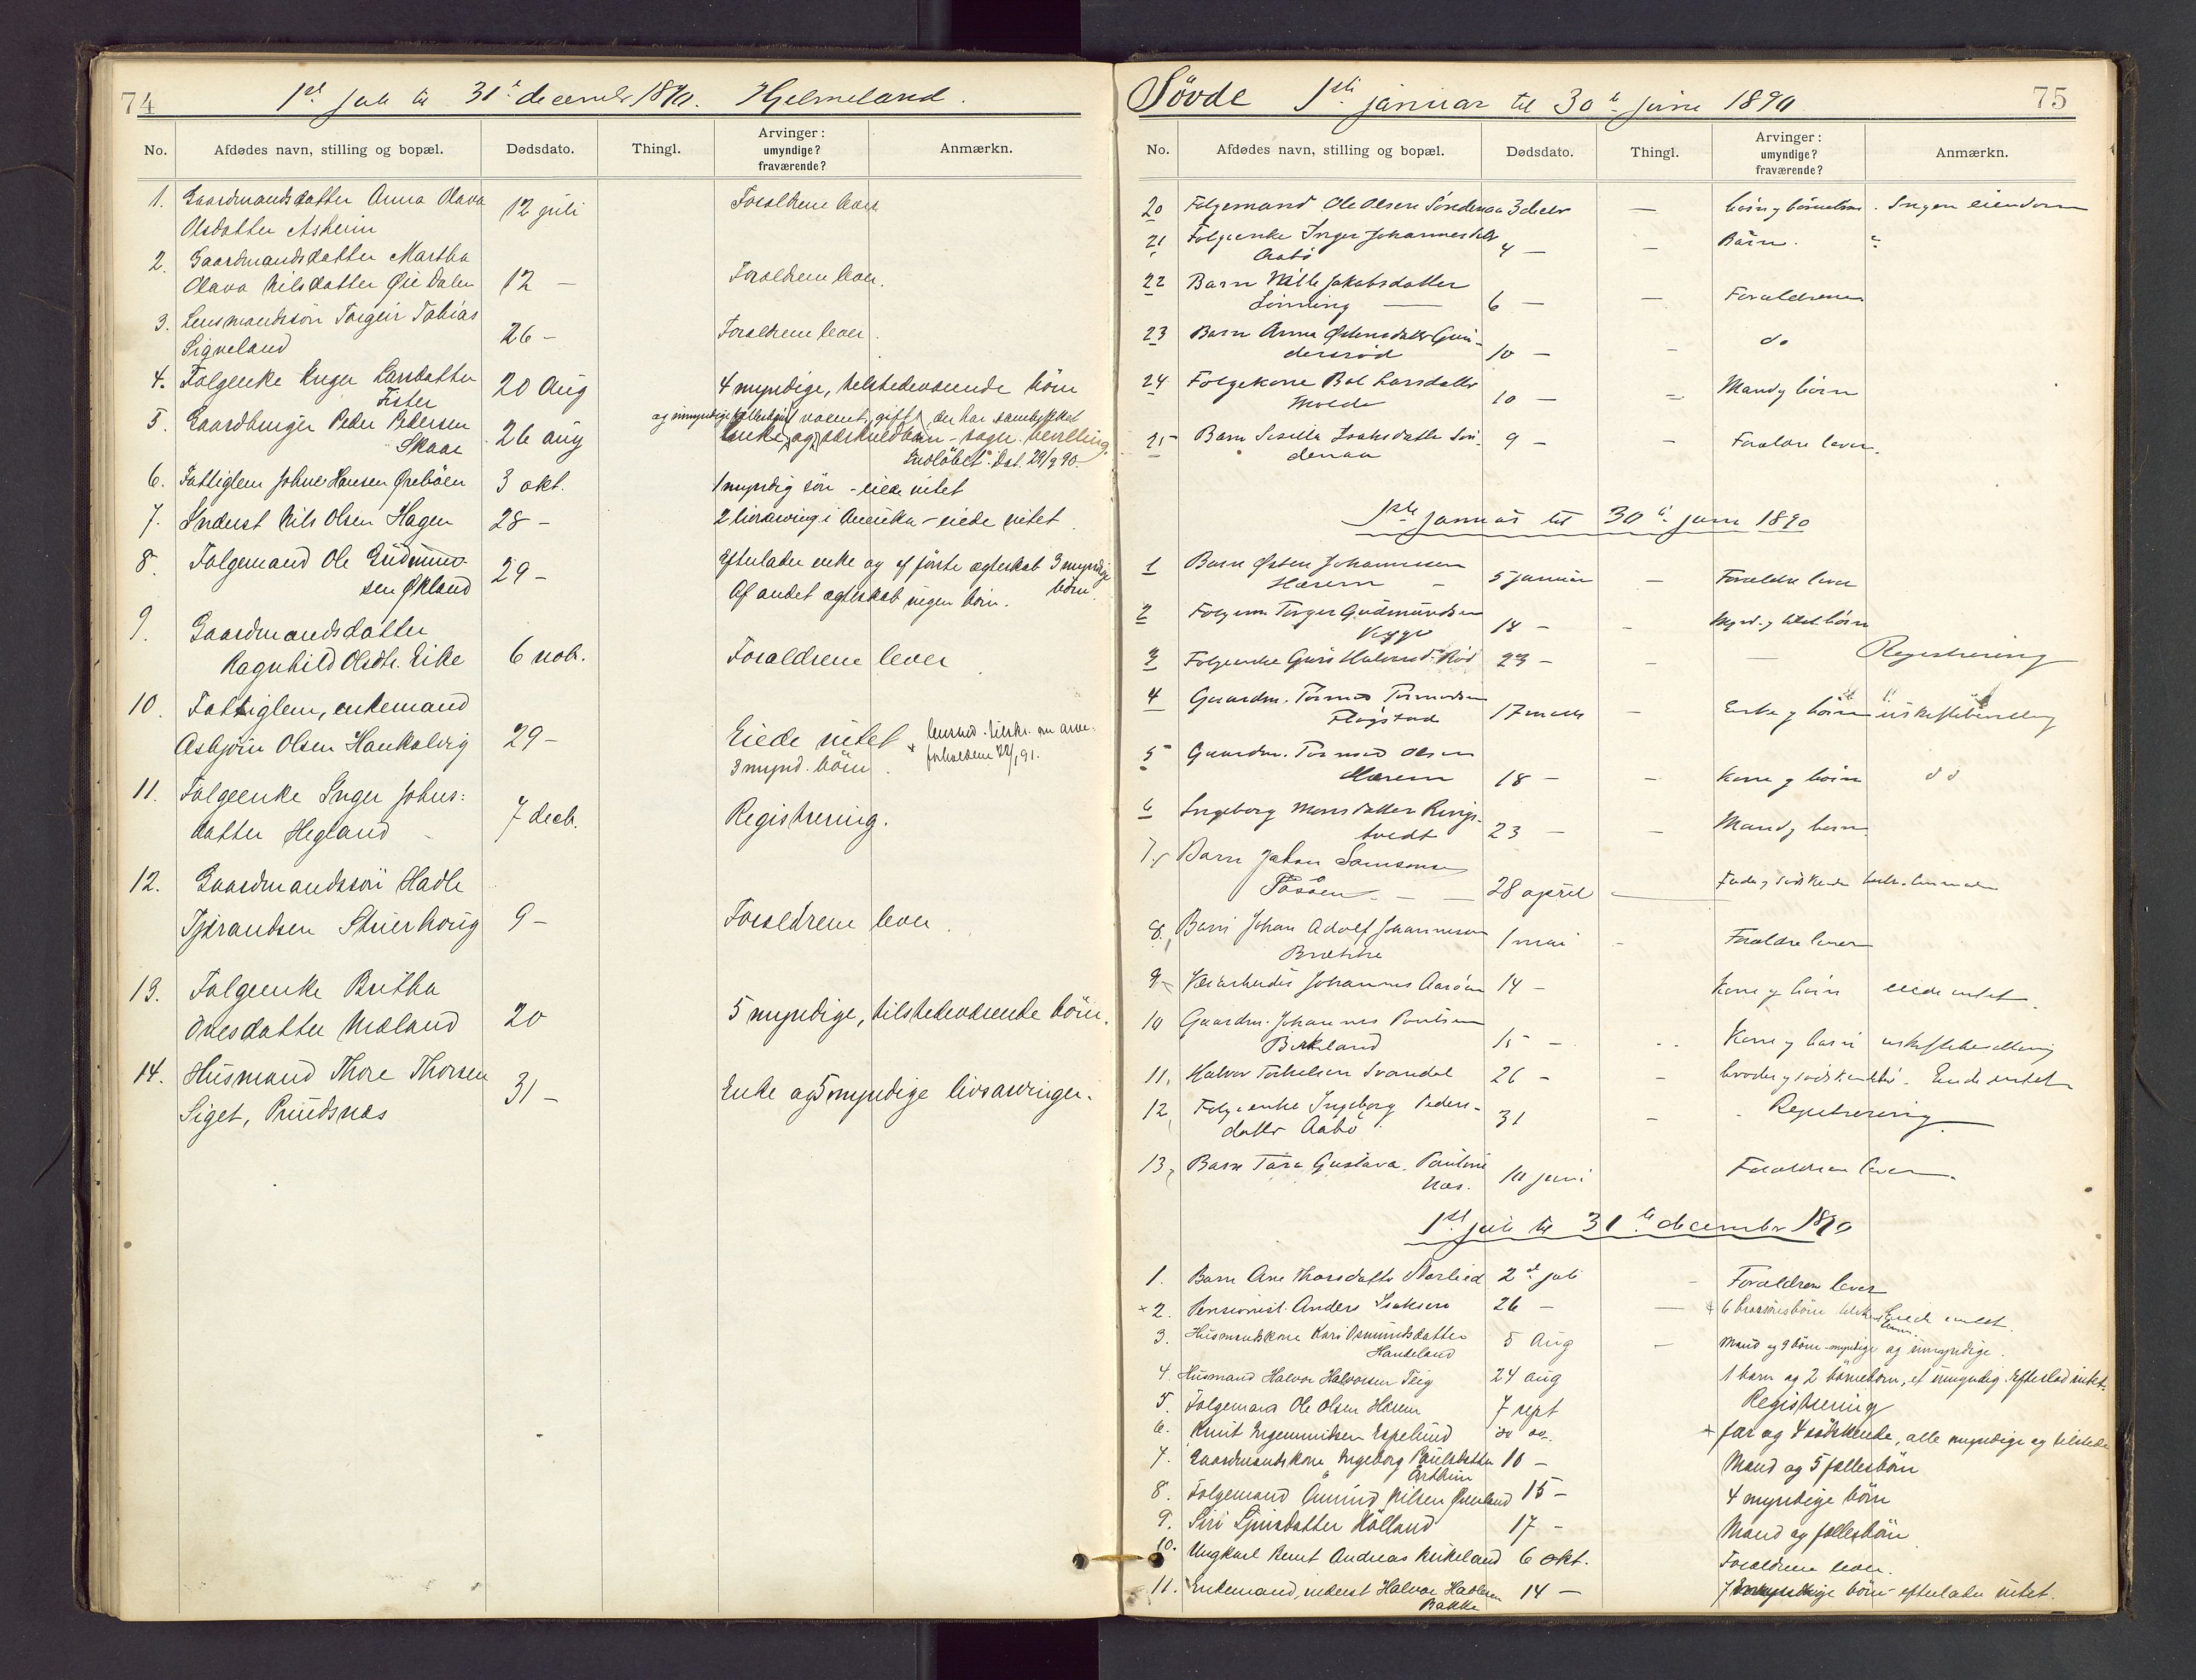 74
1st juli til 31te december 1890. Hjelmeland.
No. Afdødes navn, stilling og bopæl. Dødsdato. Thingl. Arvinger: umyndige? fraværende? Anmærkn.
1. Gaardmandsdatter Anna Olava
Olsdatter Askeim 12 juli Forældrene lever
2. Gaardmandsdatter Martha
Olava Nilsdatter Øiedalen 12 — Forældrene lever.
3. Lensmandssøn Torgeir Tobias
Signeland 26 — Forældrene lever.
4. Følgeenke Inger Larsdatter
Fister 20 Aug 4 myndige, tilstedeværende børn
5. Gaardbruger Peder Pedersen
Skaar 26 aug
Enke og særkuldbarn – søger bevilling.
Indløbet. Dat. 29/9 90.
6. Fattiglem Johnes Hansen Ørebøen 3 okt. 1 myndig søn – eiede intet
7. Inderst Nils Olsen Hagen 28 — 2 livsarving i Amerika – eiede intet
8. Følgemand Ole Gudmund-
sen Økland 29 — Efterlader enke og af første ægteskab 3 myndige
børn.
Af andet ægteskab ingen børn.
9. Gaardmandsdatter
Ragnhild Olsdtr. Eike 6 nob. Forældrene lever
10. Fattiglem, enkemand
Asbjørn Olsen Hankalvig 29 — Eiede intet
3 mynd. børn.
lensmd. tilskr. om arve-
forholdene 22/1 91.
11. Følgeenke Inger Johns:
datter Hegland 7 decb. Registrering.
12. Gaardmandssøn Hadle
Tjærandsen Skuerhoug 9 — Forældrene lever.
13. Følgeenke Britha
Ovesdatter Mæland 20 5 myndige, tilstedeværende børn.
14. Husmand Thore Thorsen
Siget, Pundsnæs 31 — Enke og 5 myndige livsarvinger.
Søvde 1ste januar til 30te juni 1890
75
No. Afdødes navn, stilling og bopæl. Dødsdato. Thingl. Arvinger: umyndige? fraværende? Anmærkn.
20 Følgemand Ole Olsen Søndenaa 3 decbr — børn og børnebørn. Ingen eiendom
21 Følgeenke Inger Johannesdtr
Aabø 4 — — Børn. "
22 Barn Jakobsdatter
Lønning 6 — — Forældrene
23 Barn Anna Østensdatter
10 — — do
24 Følgekone Bol Larsdatter
Molde 10 — — Mand og børn
25 Barn Sesilia Isaksdatter Søn-
denaa 9 — — Forældre lever.
1ste januar til 30te juni 1890
1 Barn Østen Johannessen
Hærem 5 januar — Forældre lever
2 Torger Gudmundsen
18 — — Mynd. og tilst. børn
3 Følgeenke Guri Halvorsd. Rød 23 — — — Registrering
4 Gaardm. Tormod Tormodsen
Fløgstad 17 marts — Enke og børn uskiftebevilling
5 Gaardm. Tormod Olsen
Hærem 18 — — Kone og børn do
6 Ingeborg Monsdatter Rings-
tvedt 23 — — Mand og børn
7. Barn Johan Samsonsen
28 april —
8. Barn Johan Adolf Johannessen
Brække 1 mai — Forældre lever
9 Johannes Aarøen 14 — Kone og børn eiede intet.
10 Gaardm. Johannes Poulsen
Birkeland 15 — Kone og børn uskiftebevilling
11. Halvor Torkelsen Svandal 26 — — Eiede intet
12. Følgeenke Ingeborg Peders-
datter Aabø 31 — Registrering
13. Barn Tara Gustava Pauline
Næs. 10 juni Forældrene lever.
1ste juli til 31te december 1890
1. Barn Ane Thorsdatter 2den juli — Forældrene lever
+ 2. Pensionist Anders Isaksen 26 — — Eiede intet.
3. Husmandskone Kari Osmundsdatter
Handeland 5 Aug — Mand og 9 børn myndige og umyndige.
4. Husmand Halvor Halvorsen Teig 24 aug 1 barn og 2 børnebørn, et umyndig. Efterlod intet.
5. Følgemand Ole Olsen Hærem 7 sept Registrering
6. Knut Espelund do do. + far og 4 sødskende, alle myndige og tilstede
7. Gaardmandskone Ingeborg Paulsdatter
10 — Mand og 5 fællesbørn
8. Følgemand Åmund Nilsen Øverland 15 — 4 myndige børn
9. Siri Sjursdatter Hølland 17 — Mand og fællesbørn
10. Ungkarl Bernt Andreas Birkeland 6 okt. Forældrene lever.
11. Enkemand, inderst Halvor Hadlesen
Bakke 14 — 7 myndige børn – efterlader intet.